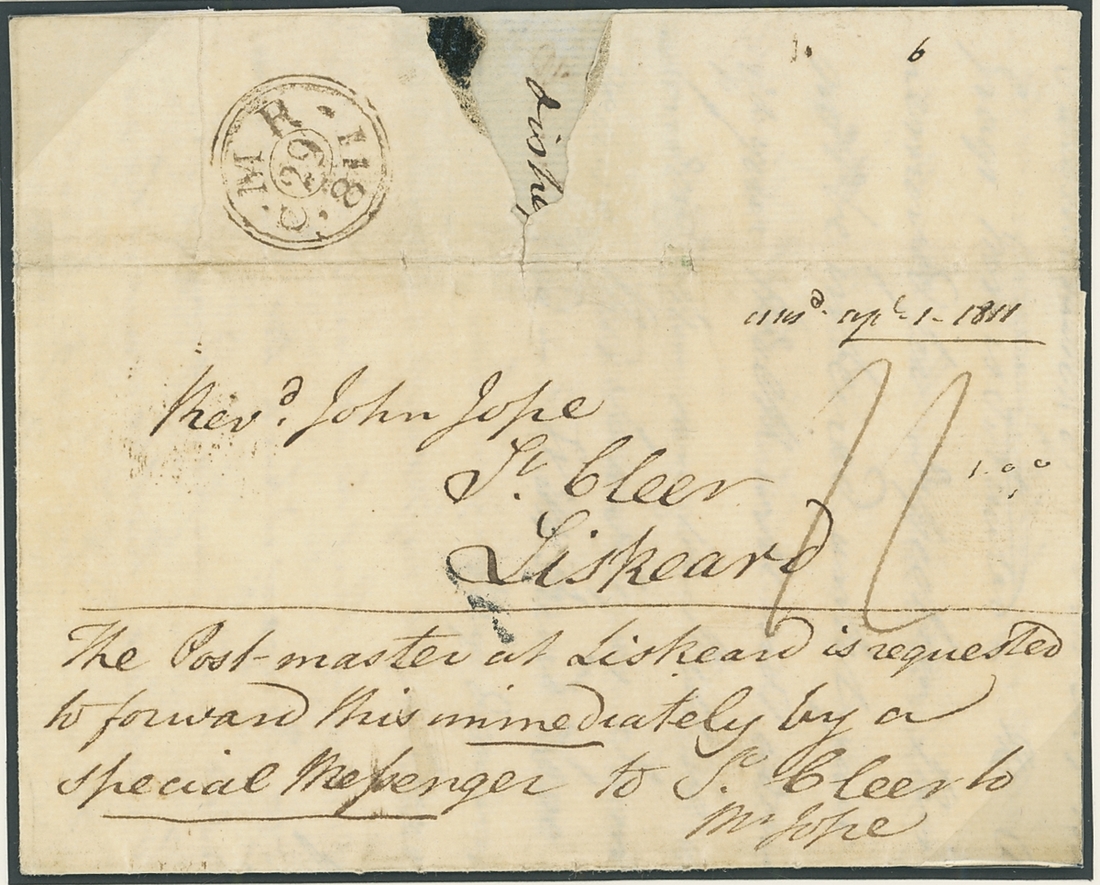 6
C MR 29 811
ansd. apl. 1 - 1811
Revd. John Jope
St. Cleer
Liskeard
11
The Post-master at Liskeard is requested
to forward this immediately by a
special Messenger to St. Cleer to
Mr Jope